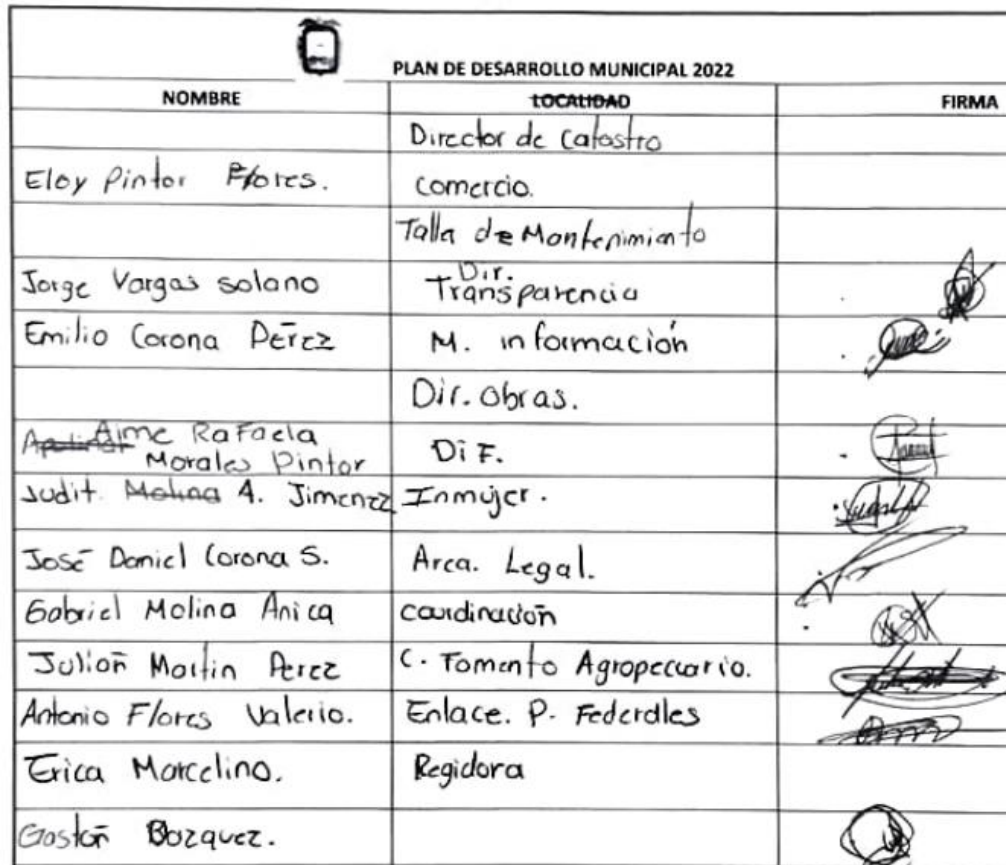 PLAN DE DESARROLLO MUNICIPAL 2022
NOMBRE LOCALIDAD FIRMA
Director de Catastro
Eloy Pintor Flores. comercio.
Talla de Mantenimiento
Jorge Vargas solano Dir. Transparencia
Emilio Corona Pérez M. información
Dir. Obras.
Aime Rafaela
Morales Pintor Di F.
Judit. Molina A. Jimenez Inmujer.
José Daniel Corona S. Area. Legal.
Gabriel Molina Anica cordinación
Julian Martin Perez C. Fomento Agropecuario.
Antonio Flores Valerio. Enlace. P. Federales
Erica Marcelino. Regidora
Gastón Bozquez.